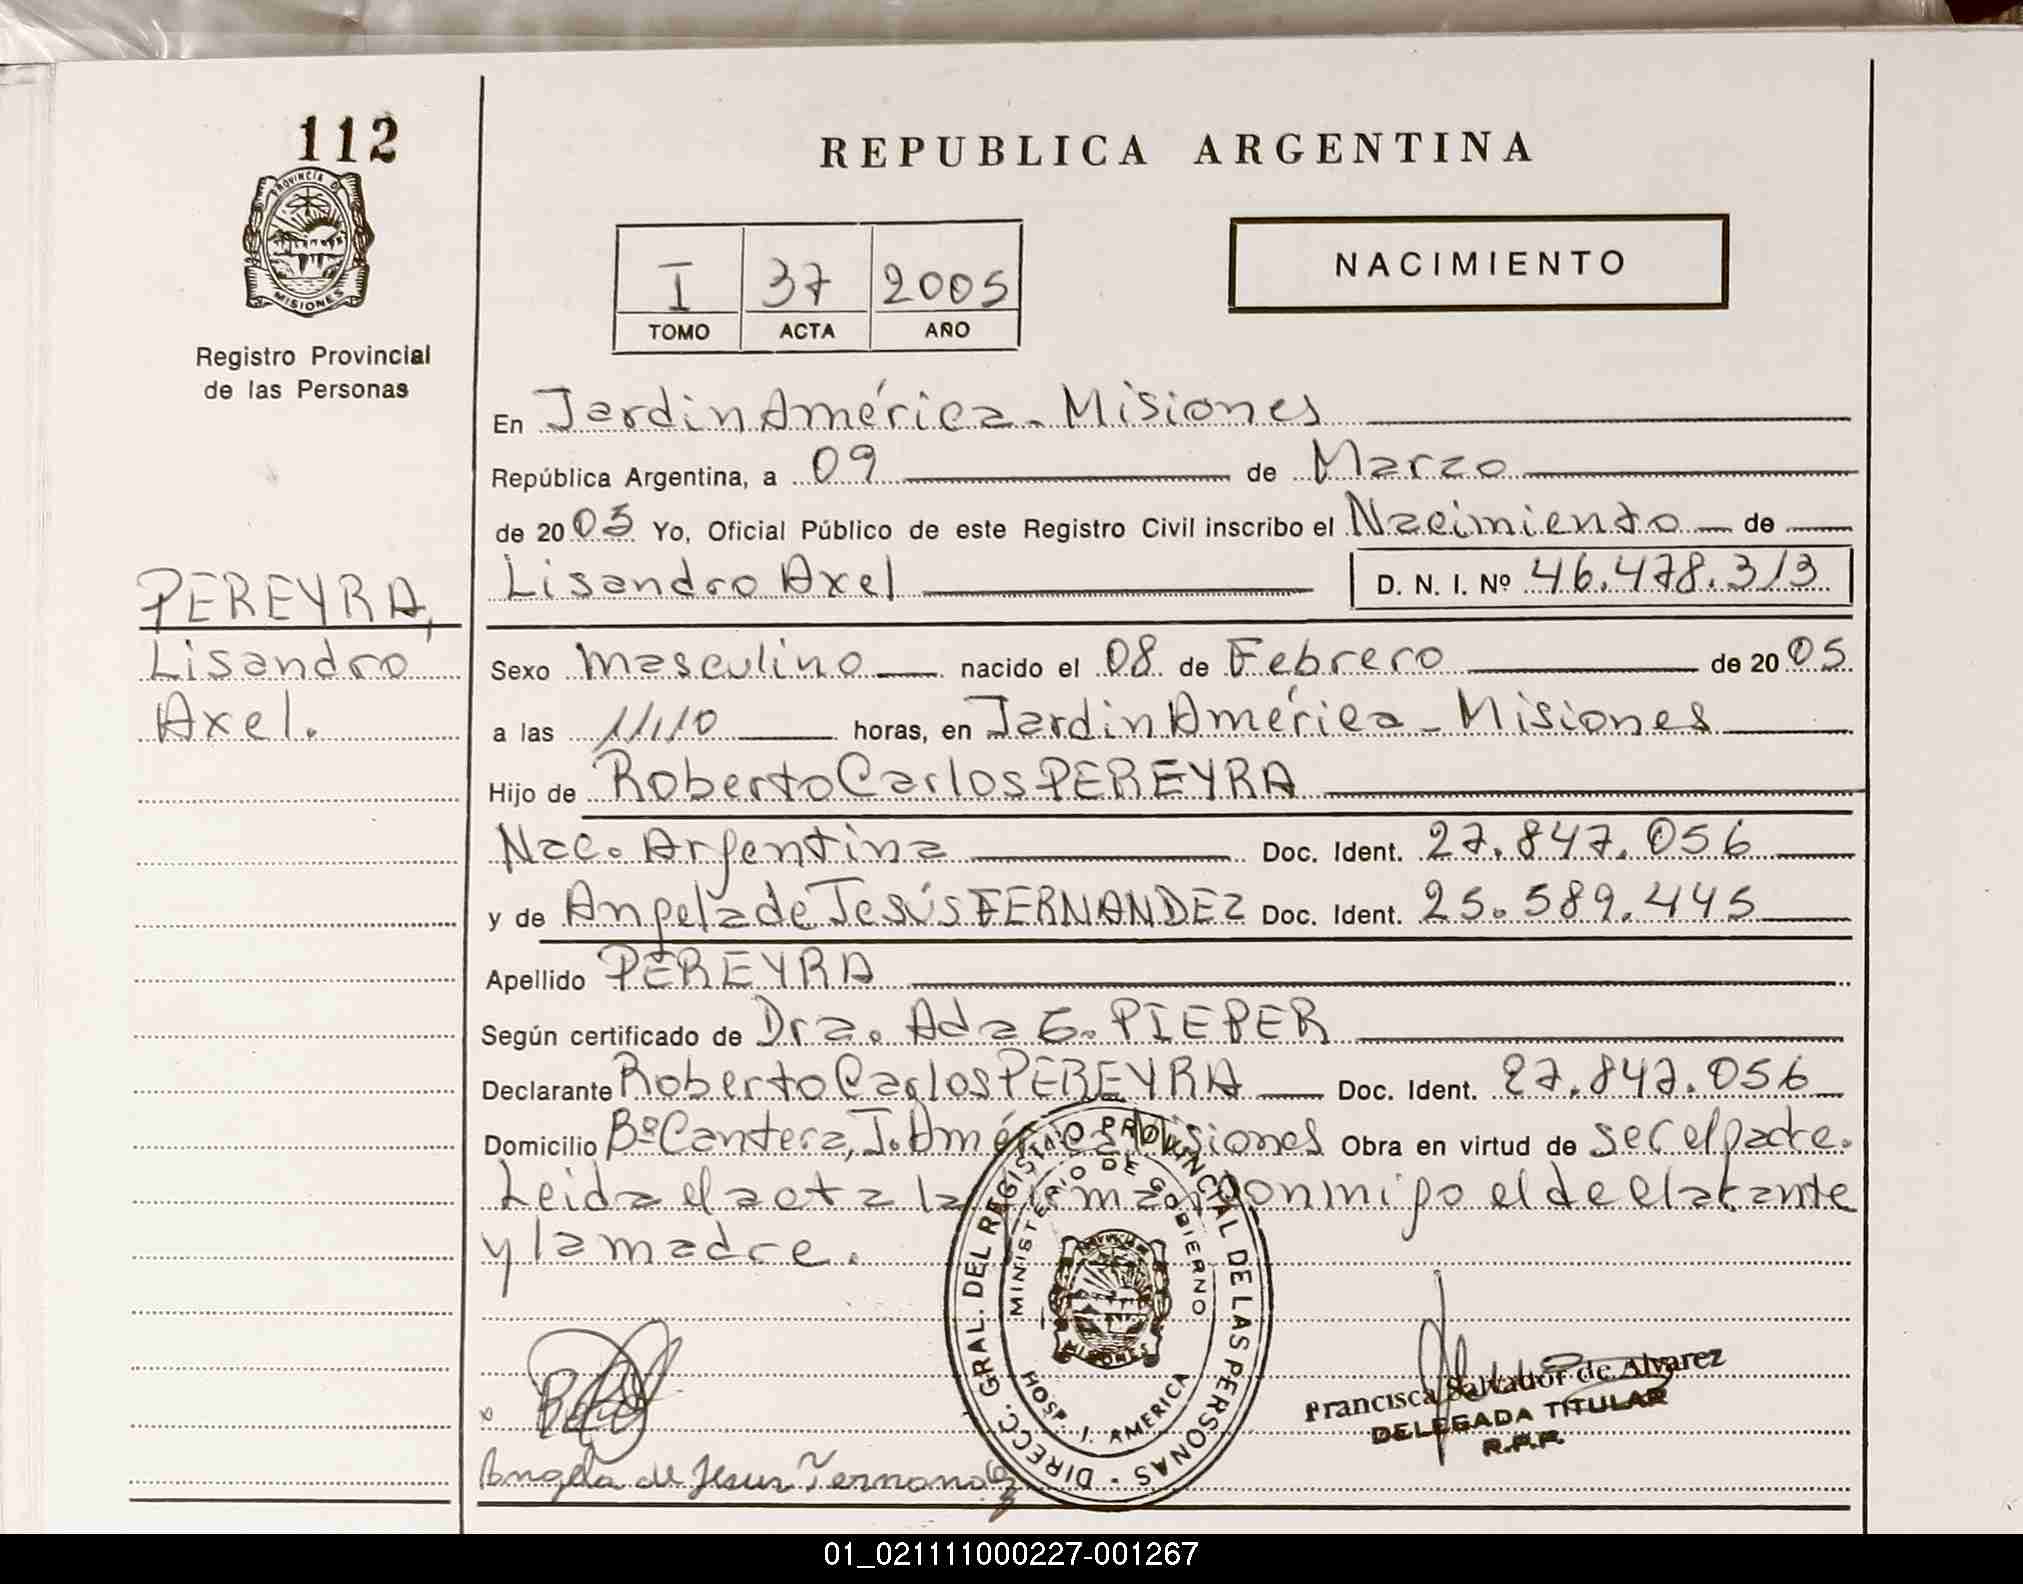 112
PROVINCIA DE
MISIONES
Registro Provincial
de las Personas
PEREYRA,
Lisandro
Axel.
REPUBLICA ARGENTINA
I 37 2005
TOMO ACTA AÑO
NACIMIENTO
En Jardin América - Misiones
República Argentina, a 09 de Marzo
de 2005 Yo, Oficial Público de este Registro Civil inscribo el Nacimiento de
Lisandro Axel D. N. I. Nº 46.478.313
Sexo masculino nacido el 08 de Febrero de 2005
a las 11,10 horas, en Jardin América - Misiones
Hijo de Roberto Carlos PEREYRA
Nac. Argentina Doc. Ident. 27.847.056
y de Angela de Jesús FERNANDEZ Doc. Ident. 25.589.445
Apellido PEREYRA
Según certificado de Dra. Ada G. PIEPER
Declarante Roberto Carlos PEREYRA Doc. Ident. 27.847.056
Domicilio Bº Cantera, J. América Misiones Obra en virtud de ser el padre.
Leida el acta la firman conmigo el declarante
y la madre.
DIRECC. GRAL. DEL REGISTRO PROVINCIAL DE LAS PERSONAS
MINISTERIO DE GOBIERNO
MISIONES
HOSP. J. AMERICA
Francisca Salvador de Alvarez
DELEGADA TITULAR
R.P.P.
Angela de Jesus Fernandez
01_021111000227-001267